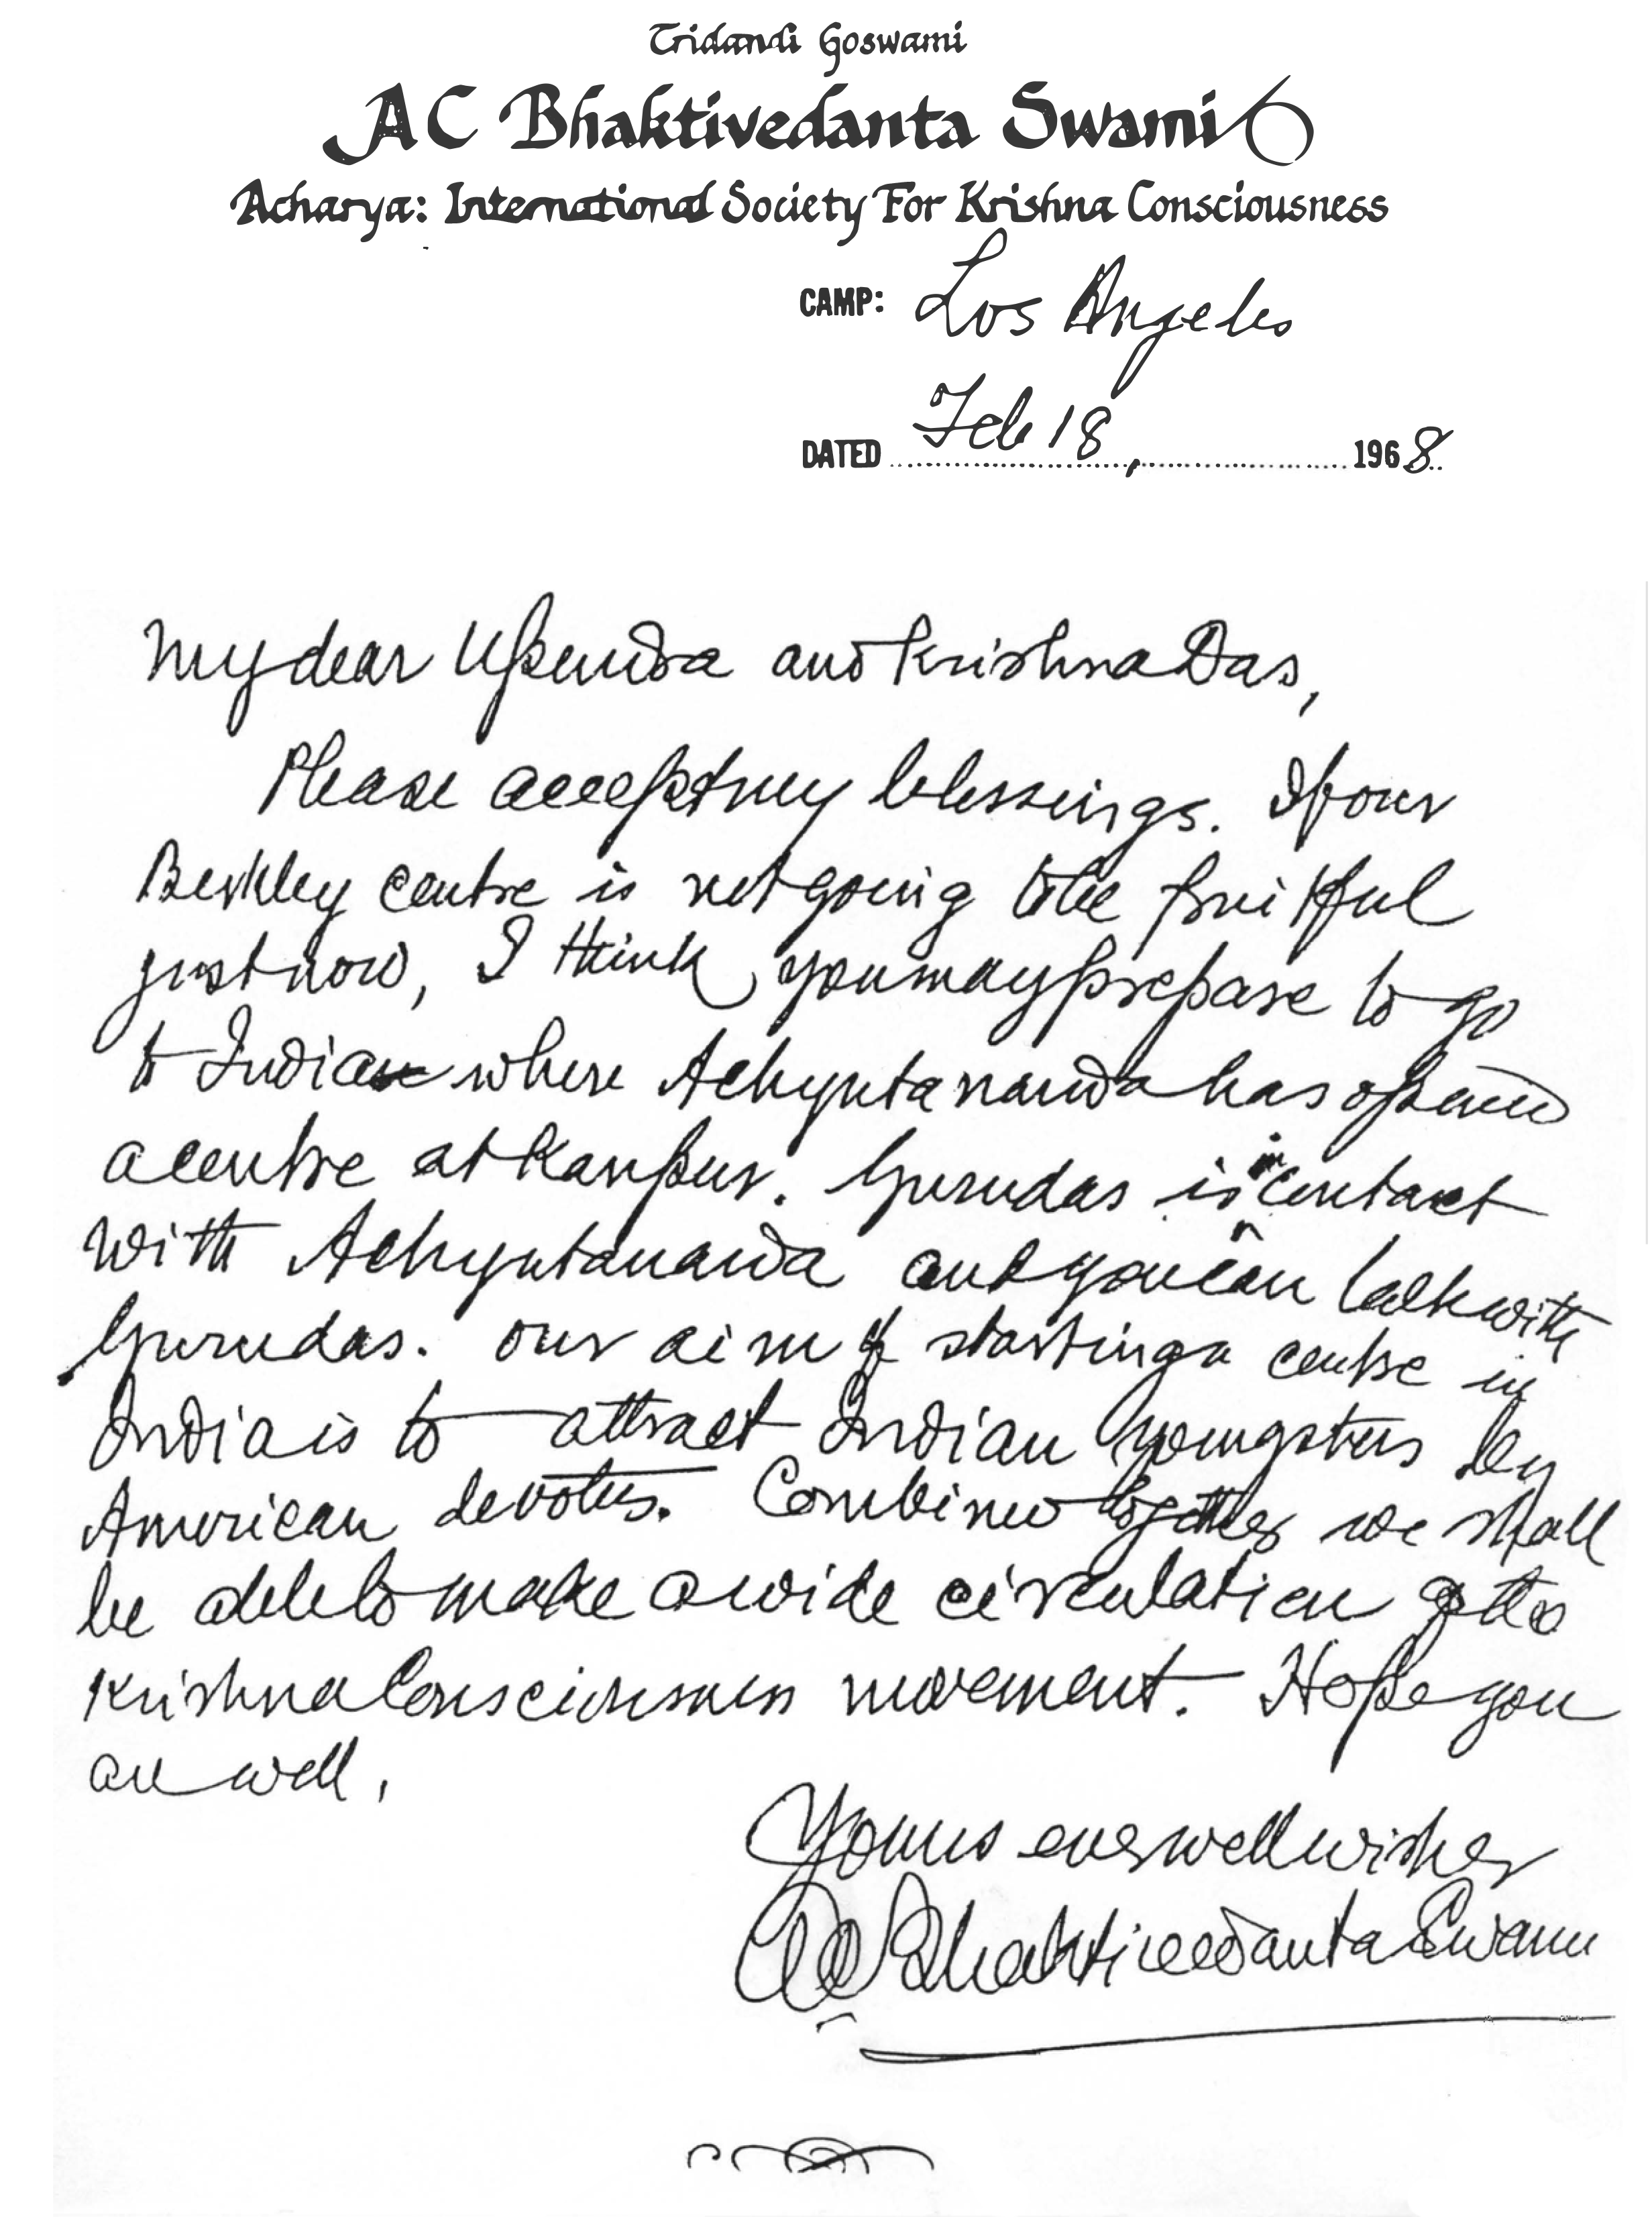 Tridandi Goswami
AC Bhaktivedanta Swami
Acharya: International Society For Krishna Consciousness
CAMP: Los Angeles
DATED Feb 18, 1968
My dear Upendra and Krishna Das,
Please accept my blessings. If our
Berkley centre is not going to be fruitful
just now, I think you may prepare to go
to India where Achyutananda has opened
a centre at Kanpur. Gurudas is in contact
with Achyutananda and you can talk with
Gurudas. Our aim of starting a centre in
India is to attract Indian youngsters by
American devotees. Combined together we shall
be able to make a wide circulation of the
Krishna Consciousness movement. Hope you
are well,
Yours ever well wisher
AC Bhaktivedanta Swami